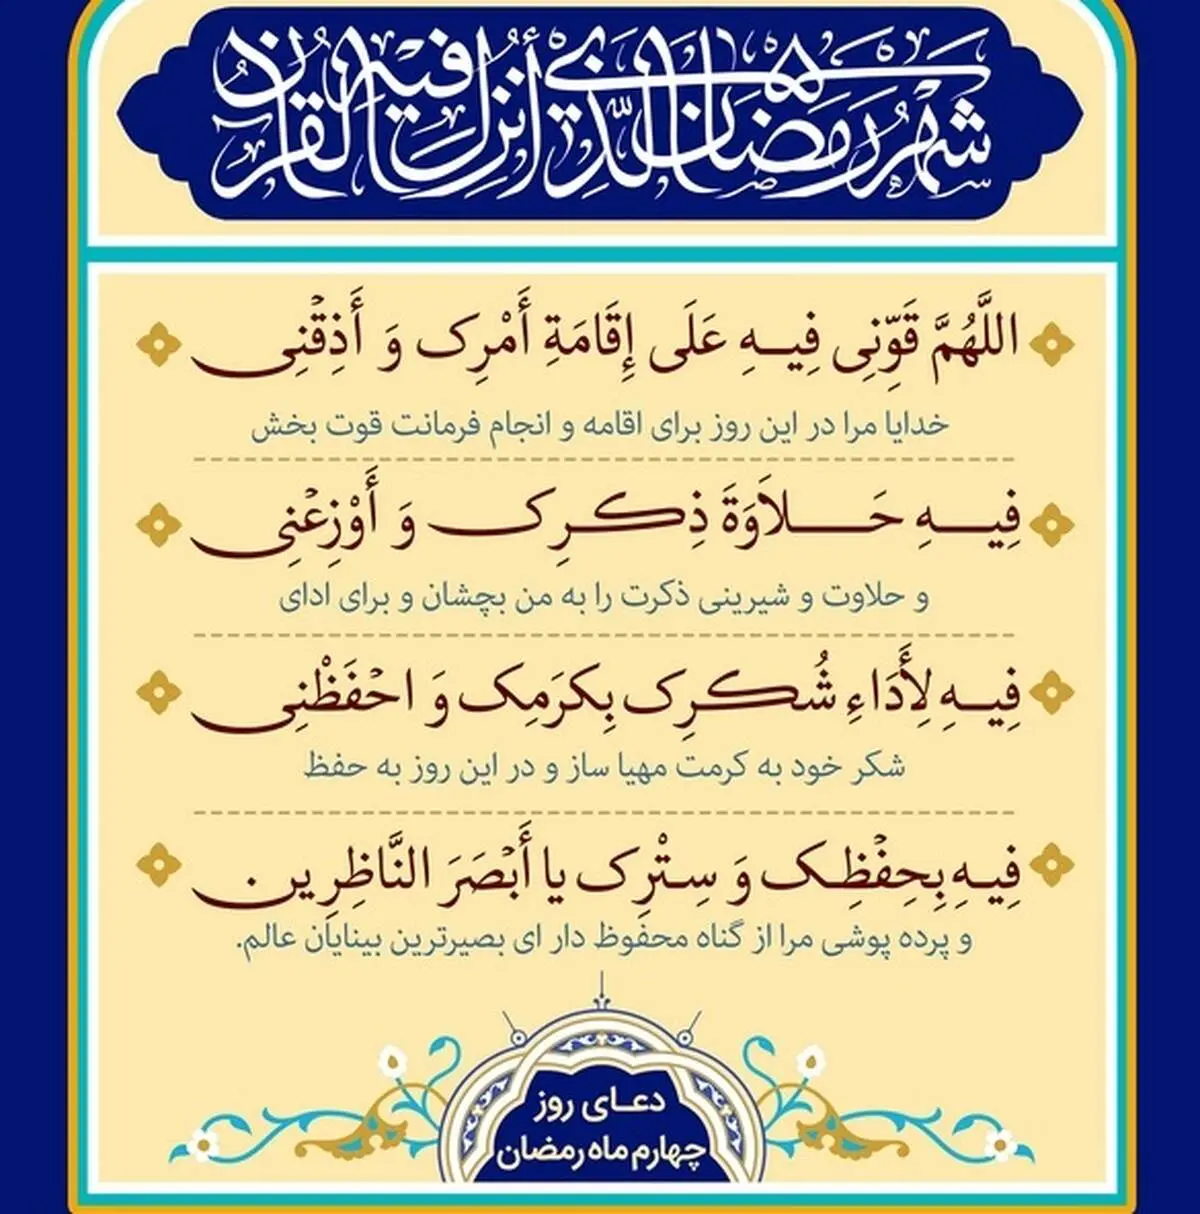 شَهْرُ رَمَضَانَ الَّذِي أُنْزِلَ فِيهِ الْقُرْآنُ
اللَّهُمَّ قَوِّنِی فِیهِ عَلَی إِقَامَةِ أَمْرِک وَ أَذِقْنِی
خدایا مرا در این روز برای اقامه و انجام فرمانت قوت بخش
فِیهِ حَلاَوَةَ ذِکرِک وَ أَوْزِعْنِی
و حلاوت و شیرینی ذکرت را به من بچشان و برای ادای
فِیهِ لِأَدَاءِ شُکرِک بِکرَمِک وَ احْفَظْنِی
شکر خود به کرمت مهیا ساز و در این روز به حفظ
فِیهِ بِحِفْظِک وَ سِتْرِک یا أَبْصَرَ النَّاظِرِین
و پرده پوشی مرا از گناه محفوظ دار ای بصیرترین بینایان عالم.
دعای روز
چهارم ماه رمضان